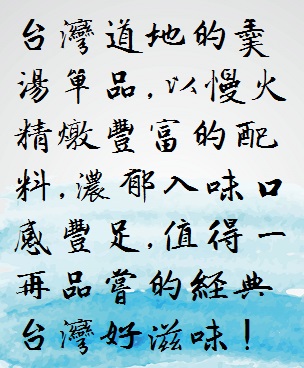 台灣道地的羹
湯單品,以慢火
精燉豐富的配
料,濃郁入味口
感豐足,值得一
再品嘗的經典
台灣好滋味!